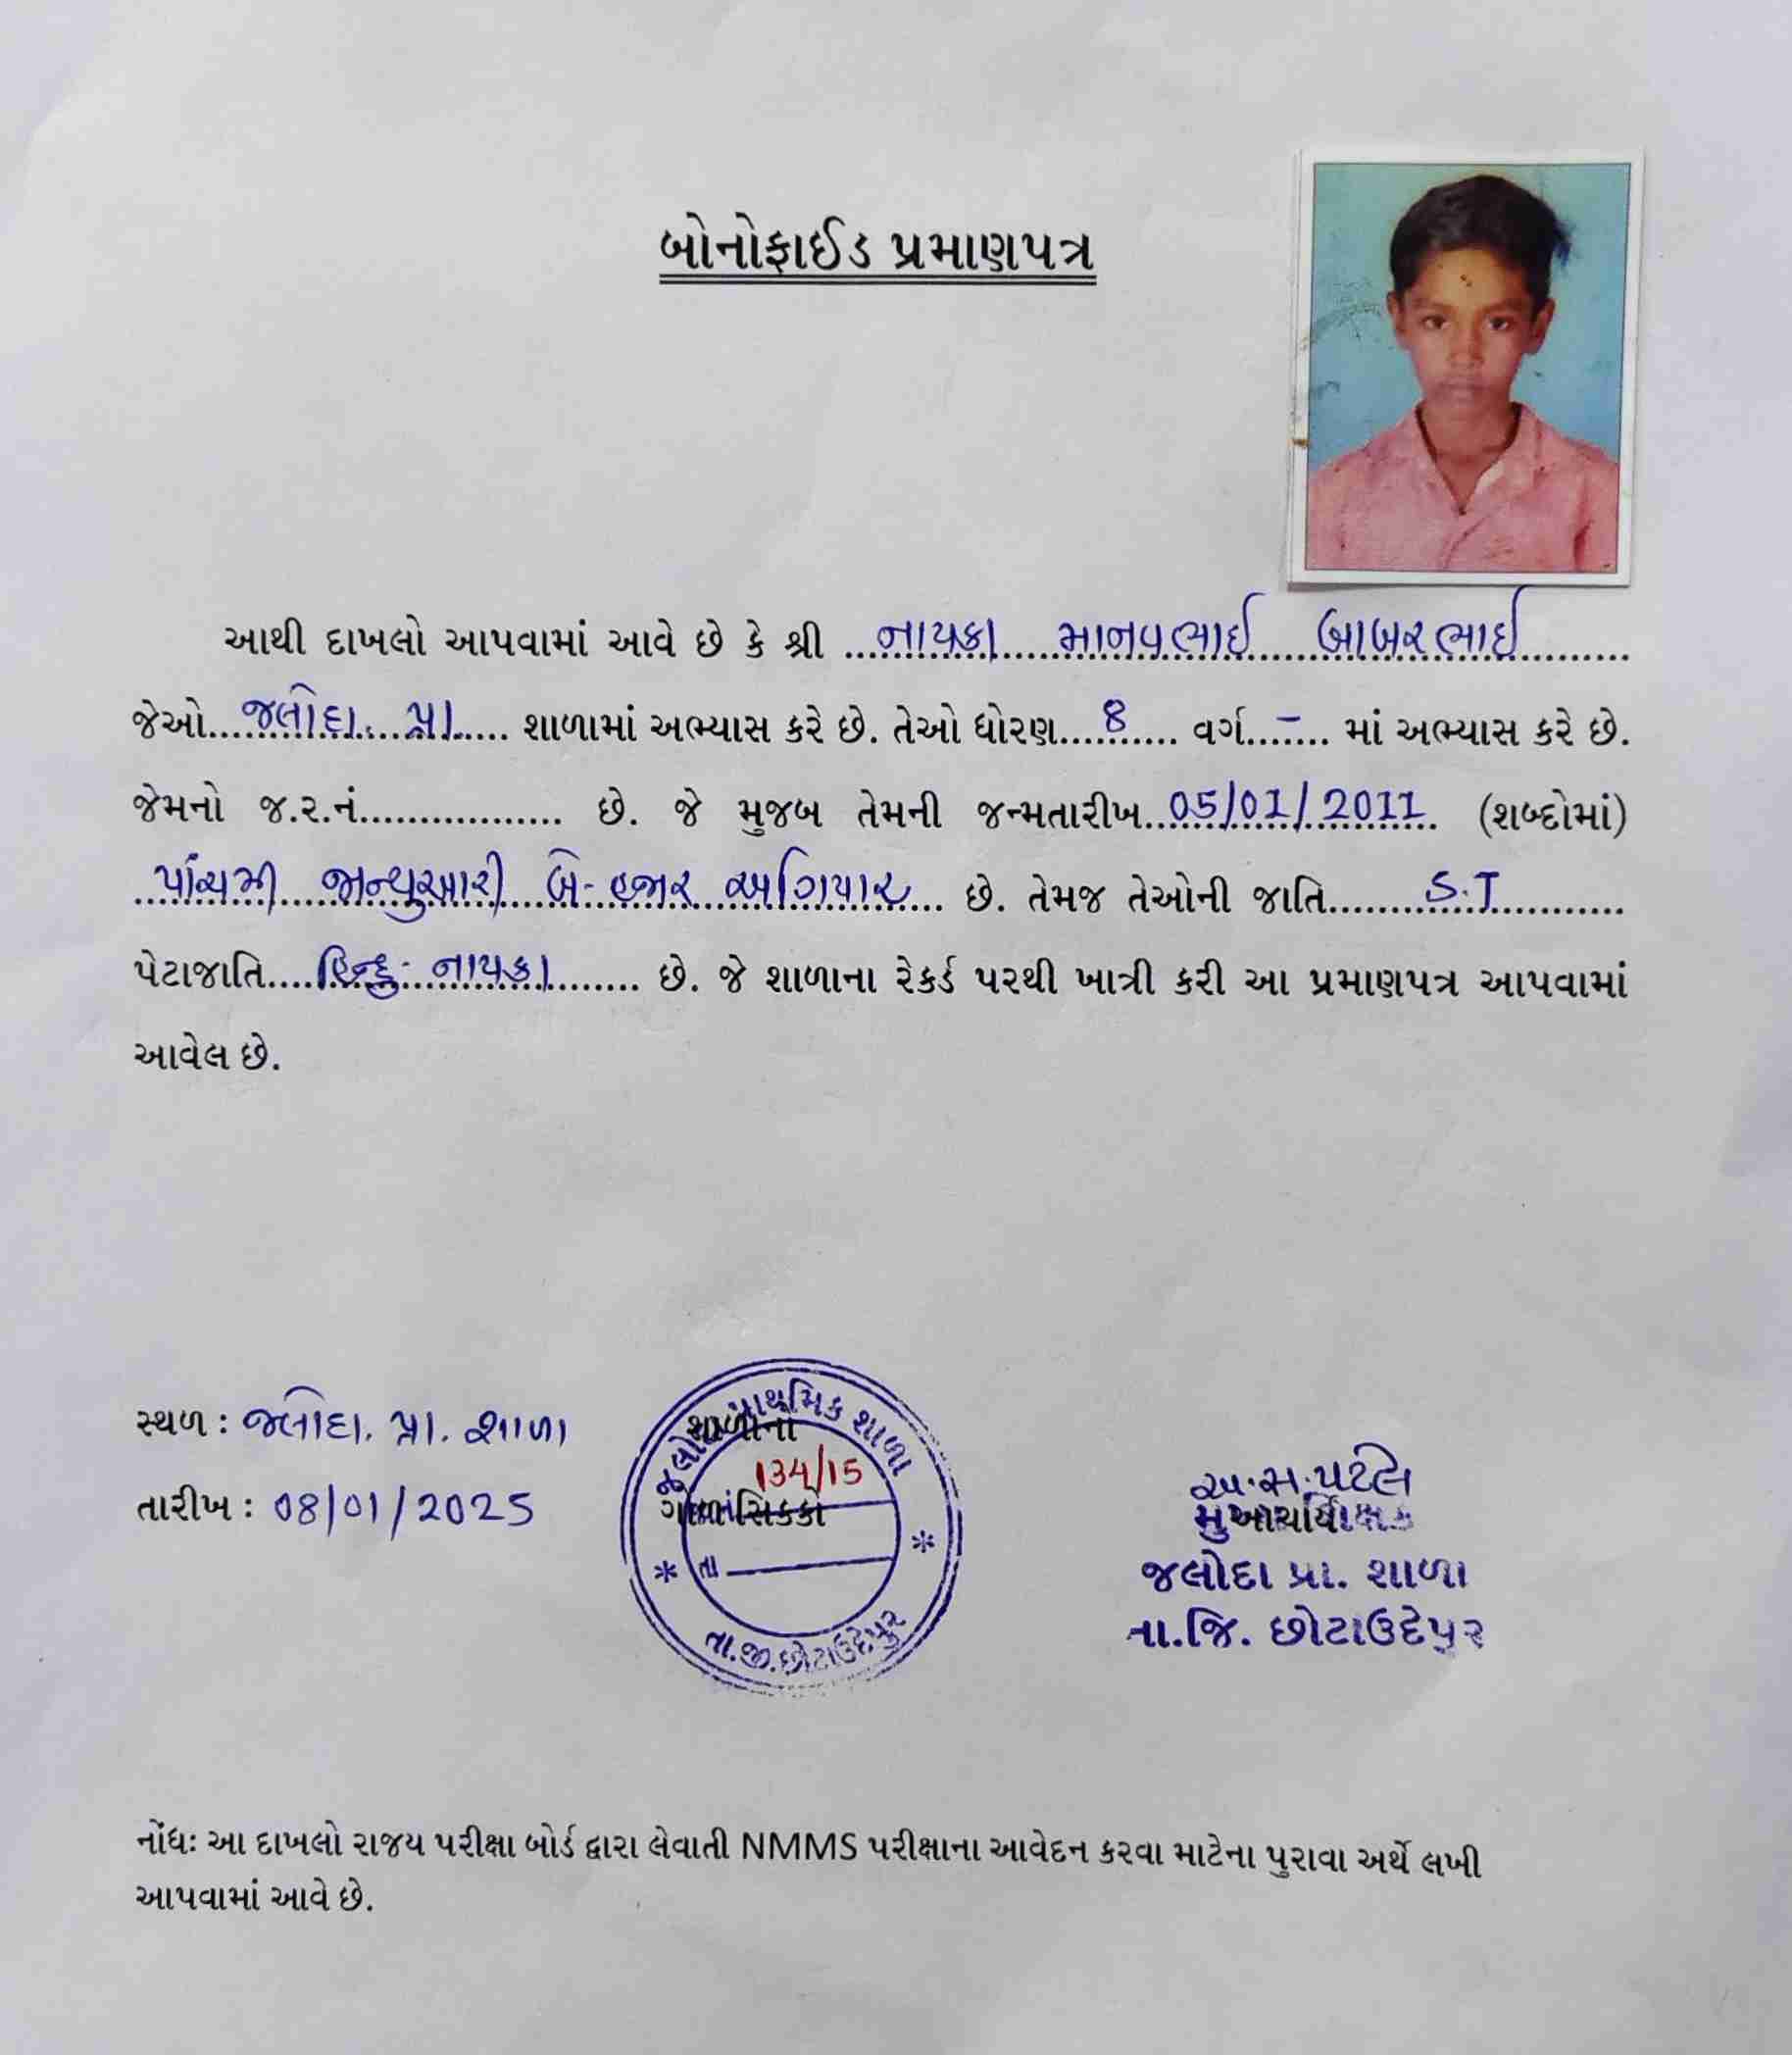 બોનોફાઈડ પ્રમાણપત્ર
આથી દાખલો આપવામાં આવે છે કે શ્રી ...નાયકા....માનવભાઈ....બાબરભાઈ.........
જેઓ...જલોદા...પ્રા..... શાળામાં અભ્યાસ કરે છે. તેઓ ધોરણ....8.... વર્ગ...–... માં અભ્યાસ કરે છે.
જેમનો જ.ર.નં.................. છે. જે મુજબ તેમની જન્મતારીખ..05/01/2011.. (શબ્દોમાં)
..પાંચમી...જાન્યુઆરી...બે-હજાર...અગિયાર... છે. તેમજ તેઓની જાતિ.........S.T............
પેટાજાતિ....હિન્દુ-નાયકા........ છે. જે શાળાના રેકર્ડ પરથી ખાત્રી કરી આ પ્રમાણપત્ર આપવામાં
આવેલ છે.
સ્થળ : જલોદા. પ્રા. શાળા
તારીખ : 08/01/2025
જલોદા પ્રાથમિક શાળા
શાળાનો
134/15
ગોળ સિક્કો
તા
તા.જી.છોટાઉદેપુર
અ.સ.પટેલ
જલોદા પ્રા. શાળા
તા.જિ. છોટાઉદેપુર
નોંધઃ આ દાખલો રાજય પરીક્ષા બોર્ડ દ્વારા લેવાતી NMMS પરીક્ષાના આવેદન કરવા માટેના પુરાવા અર્થે લખી
આપવામાં આવે છે.